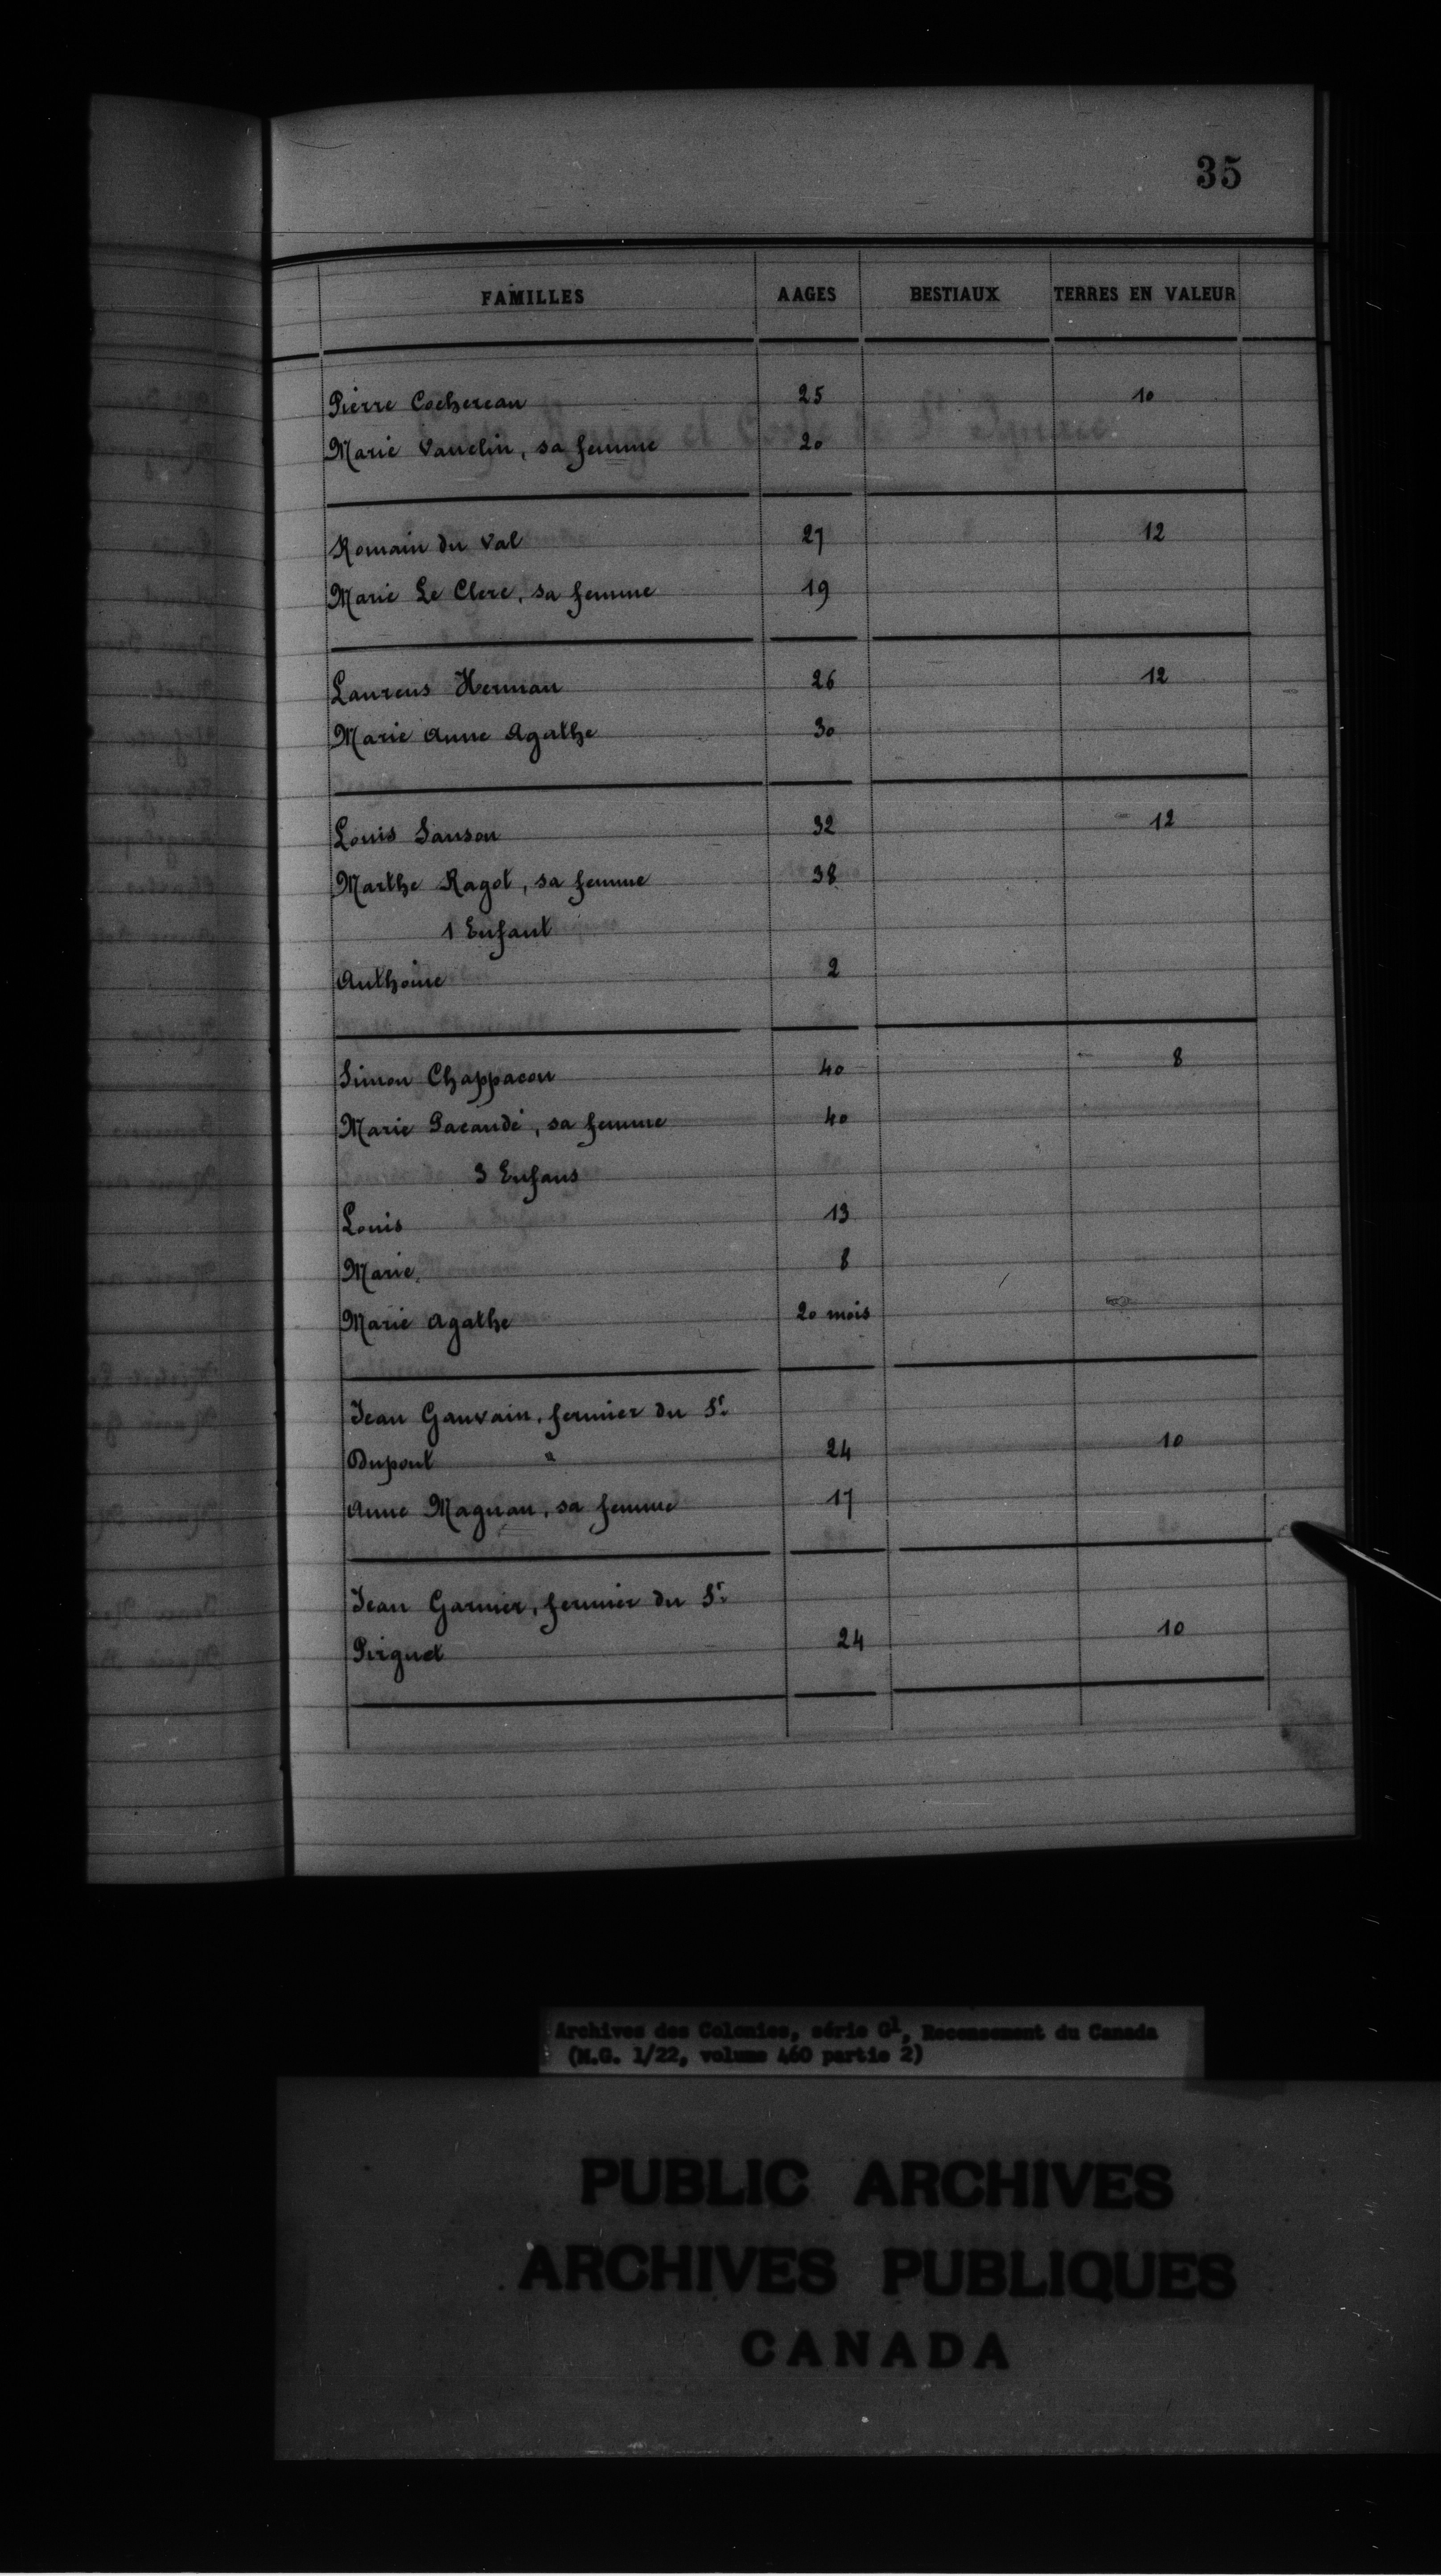 35
FAMILLES AAGES BESTIAUX TERRES EN VALEUR
Pierre Cochereau 25 10
Marie Vauclin, sa femme 20
Romain du Val 27 12
Marie Le Clerc, sa femme 19
Laurens Herman 26 12
Marie Anne Agathe 30
Louis Sanson 32 12
Marthe Ragot, sa femme 38
1 Enfant
Anthoine 2
Simon Chappacou 40 8
Marie Pacaudé, sa femme 40
3 Enfans
Louis 13
Marie 8
Marie Agathe 20 mois
Jean Gauvain, fermier du Sr
Dupont 24 10
Anne Magnan, sa femme 17
Jean Garnier, fermier du Sr
Pirguet 24 10
Archives des Colonies, série G1, Recensement du Canada
(M.G. 1/22, volume 460 partie 2)
PUBLIC ARCHIVES
ARCHIVES PUBLIQUES
CANADA